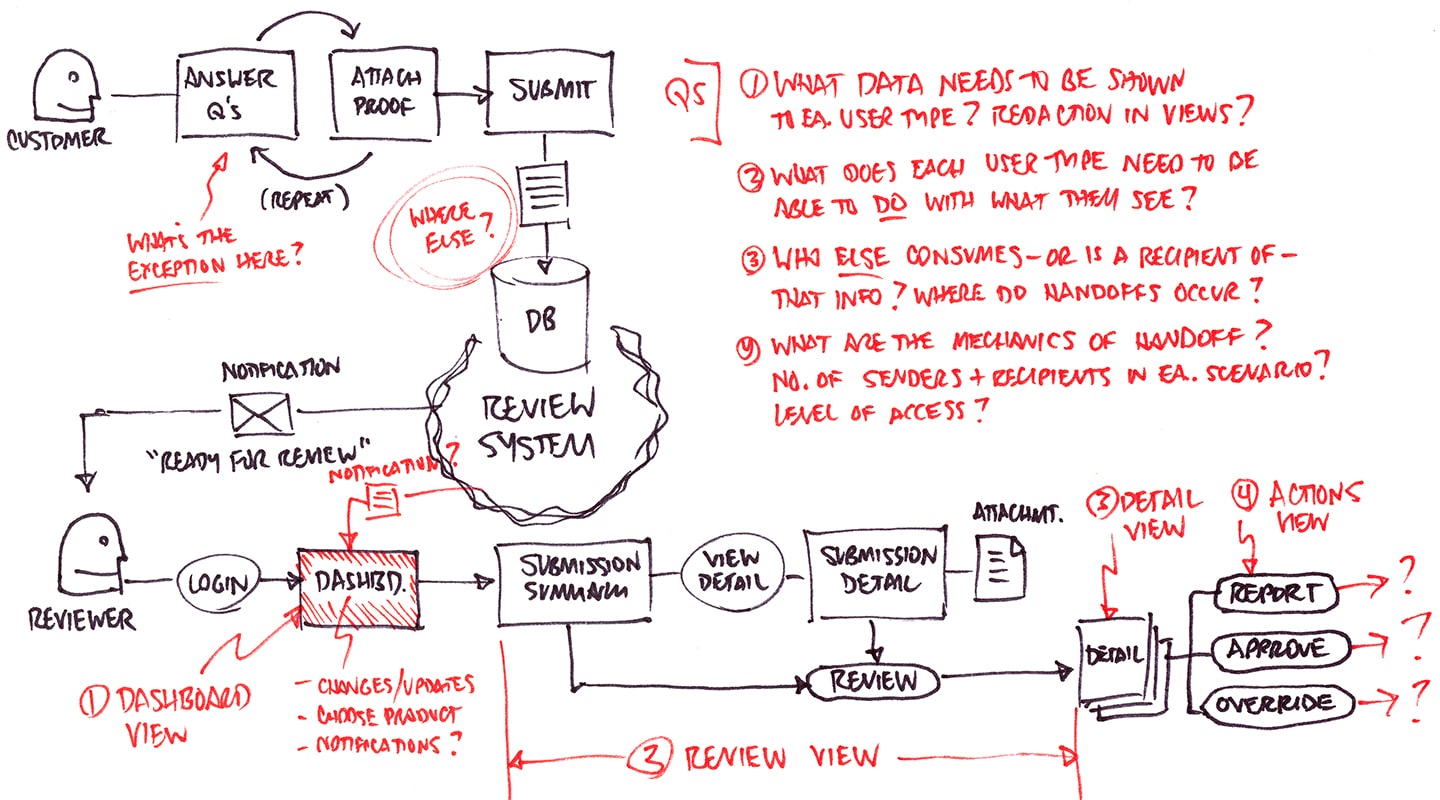 ANSWER
Q's
ATTACH
PROOF
SUBMIT
CUSTOMER
(REPEAT)
WHAT'S THE
EXCEPTION HERE?
WHERE
ELSE?
DB
QS
① WHAT DATA NEEDS TO BE SHOWN
TO EA. USER TYPE? REDACTION IN VIEWS?
② WHAT DOES EACH USER TYPE NEED TO BE
ABLE TO DO WITH WHAT THEM SEE?
③ WHO ELSE CONSUMES - OR IS A RECIPIENT OF -
THAT INFO? WHERE DO HANDOFFS OCCUR?
④ WHAT ARE THE MECHANICS OF HANDOFF?
NO. OF SENDERS + RECIPIENTS IN EA. SCENARIO?
LEVEL OF ACCESS?
NOTIFICATION
"READY FOR REVIEW"
REVIEW
SYSTEM
NOTIFICATION?
REVIEWER
LOGIN
DASHBD.
SUBMISSION
SUMMARY
VIEW
DETAIL
SUBMISSION
DETAIL
ATTACHMT.
③ DETAIL
VIEW
④ ACTIONS
VIEW
REVIEW
DETAIL
REPORT
?
APPROVE
?
OVERRIDE
?
① DASHBOARD
VIEW
- CHANGES/UPDATES
- CHOOSE PRODUCT
- NOTIFICATIONS?
② REVIEW VIEW